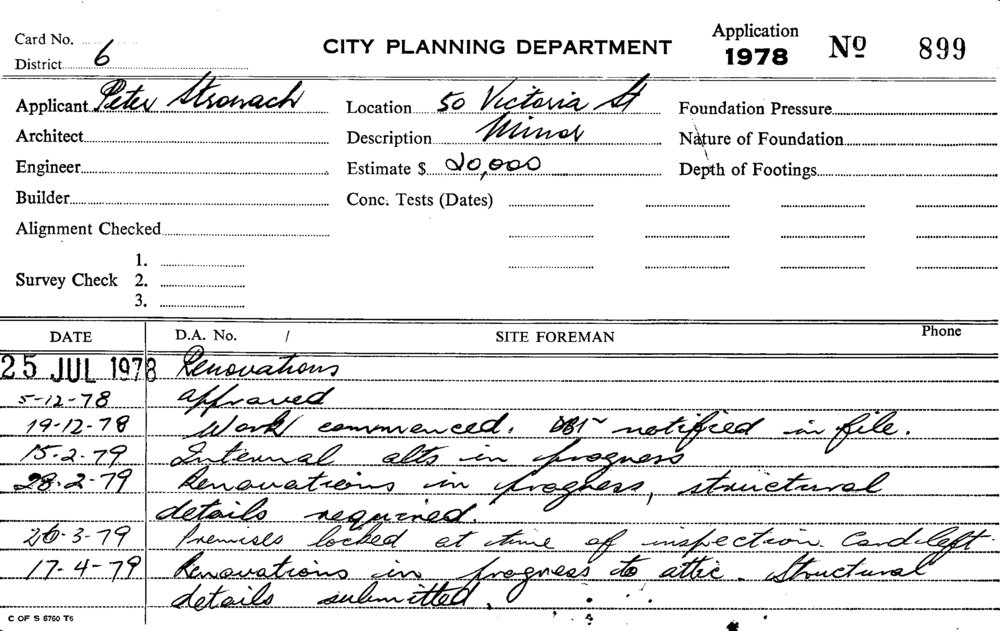 Card No.
District 6
CITY PLANNING DEPARTMENT
Application
1978
Nº 899
Applicant Peter Stronach
Location 50 Victoria St
Foundation Pressure
Architect
Description Minor
Nature of Foundation
Engineer
Estimate $ 20,000
Depth of Footings
Builder
Conc. Tests (Dates)
Alignment Checked
Survey Check
1.
2.
3.
DATE
D.A. No. /
SITE FOREMAN
Phone
25 JUL 1978 Renovations
5-12-78 approved
19-12-78 Work commenced. notified in file.
15-2-79 Internal alts in progress
28-2-79 Renovations in progress, structural
details required.
26-3-79 Premises locked at time of inspection. Card left.
17-4-79 Renovations in progress to attic. Structural
details submitted.
C OF S 6760 T6